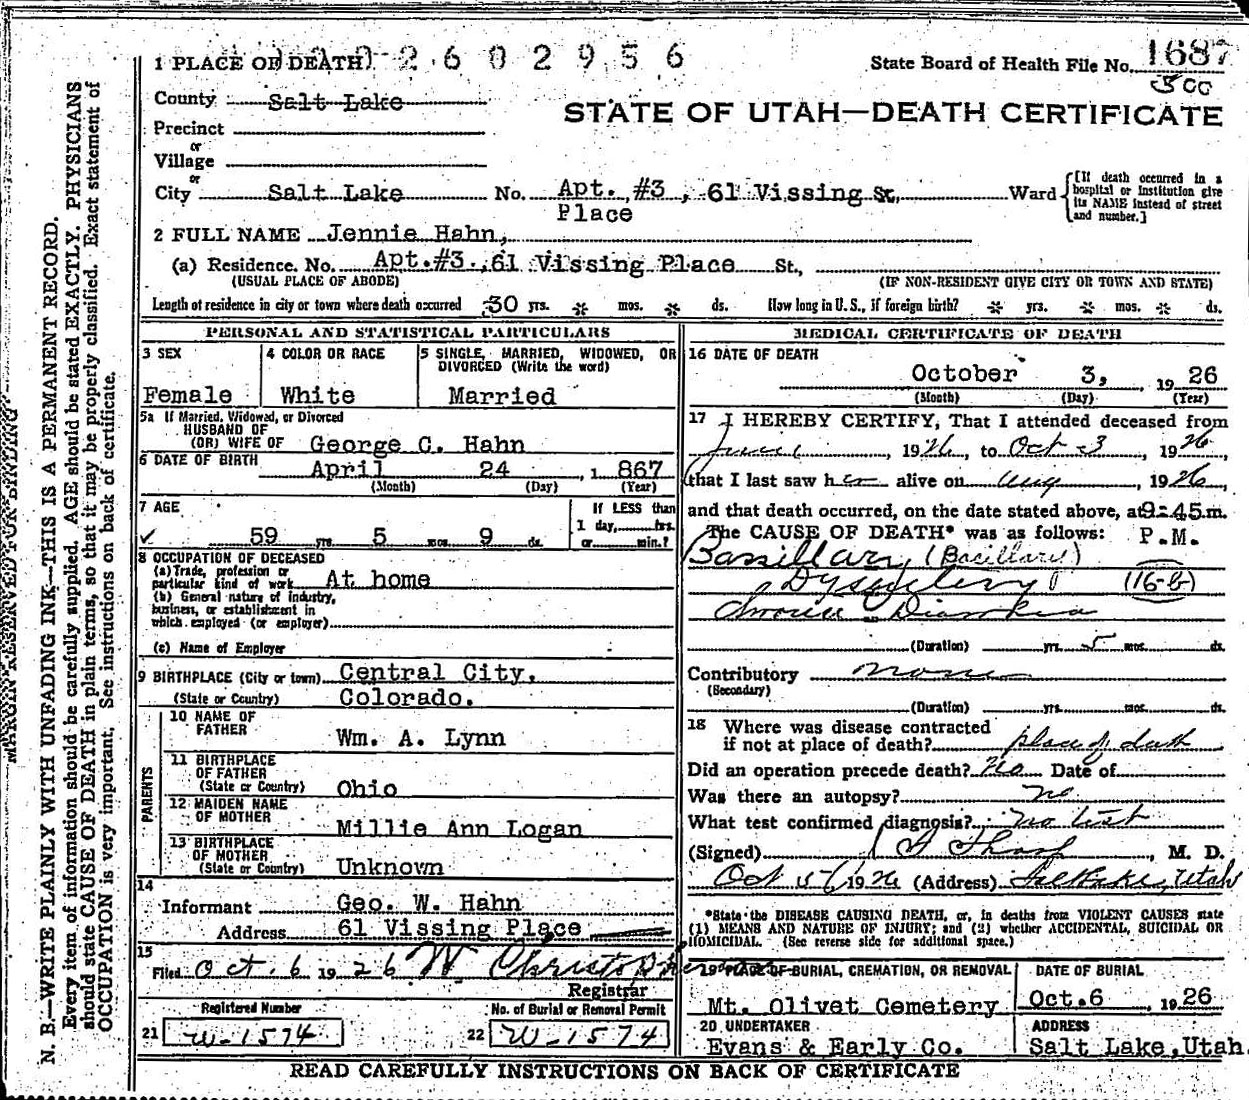 1 PLACE OF DEATH 2602956
State Board of Health File No. 1687
500
County Salt Lake
STATE OF UTAH—DEATH CERTIFICATE
Precinct
or
Village
or
City Salt Lake No. Apt. #3, 61 Vissing St. Ward
Place
[If death occurred in a hospital or institution give its NAME instead of street and number.]
2 FULL NAME Jennie Hahn,
(a) Residence. No. Apt.#3.,61 Vissing Place St.,
(USUAL PLACE OF ABODE) (IF NON-RESIDENT GIVE CITY OR TOWN AND STATE)
Length of residence in city or town where death occurred 30 yrs. * mos. * ds. How long in U.S., if foreign birth? * yrs. * mos. * ds.
PERSONAL AND STATISTICAL PARTICULARS
3 SEX
Female
4 COLOR OR RACE
White
5 SINGLE, MARRIED, WIDOWED, OR DIVORCED (Write the word)
Married
5a If Married, Widowed, or Divorced
HUSBAND OF
(OR) WIFE OF George C. Hahn
6 DATE OF BIRTH April 24, 1867
(Month) (Day) (Year)
7 AGE
59 yrs. 5 mos. 9 ds.
If LESS than
1 day, hrs.
or min.?
8 OCCUPATION OF DECEASED
(a) Trade, profession or
particular kind of work At home
(b) General nature of industry,
business, or establishment in
which employed (or employer)
(c) Name of Employer
9 BIRTHPLACE (City or town) Central City,
(State or Country) Colorado.
PARENTS
10 NAME OF
FATHER Wm. A. Lynn
11 BIRTHPLACE
OF FATHER
(State or Country) Ohio
12 MAIDEN NAME
OF MOTHER Millie Ann Logan
13 BIRTHPLACE
OF MOTHER
(State or Country) Unknown
14
Informant Geo. W. Hahn
Address 61 Vissing Place
15
Filed Oct. 6 1926
Registrar
Registered Number
21 W-1574
No. of Burial or Removal Permit
22 W-1574
MEDICAL CERTIFICATE OF DEATH
16 DATE OF DEATH
October 3, 1926
(Month) (Day) (Year)
17 I HEREBY CERTIFY, That I attended deceased from
June, 1926, to Oct 3 1926,
that I last saw her alive on Aug, 1926,
and that death occurred, on the date stated above, at 9:45 m.
The CAUSE OF DEATH* was as follows: P.M.
Bassillary (Bacillary)
Dysentery (16-b)
Diarrhea
(Duration) yrs. 5 mos. ds.
Contributory none
(Secondary)
(Duration) yrs. mos. ds.
18 Where was disease contracted
if not at place of death? place of death
Did an operation precede death? No Date of
Was there an autopsy? no
What test confirmed diagnosis? no test
(Signed) , M. D.
Oct 5 1926 (Address) Salt Lake, Utah
*State the DISEASE CAUSING DEATH, or, in deaths from VIOLENT CAUSES state
(1) MEANS AND NATURE OF INJURY; and (2) whether ACCIDENTAL, SUICIDAL OR
HOMICIDAL. (See reverse side for additional space.)
19 PLACE OF BURIAL, CREMATION, OR REMOVAL
Mt. Olivet Cemetery
DATE OF BURIAL
Oct.6 1926
20 UNDERTAKER
Evans & Early Co.
ADDRESS
Salt Lake, Utah.
READ CAREFULLY INSTRUCTIONS ON BACK OF CERTIFICATE
MARGIN RESERVED FOR BINDING
N. B.—WRITE PLAINLY WITH UNFADING INK—THIS IS A PERMANENT RECORD.
Every item of information should be carefully supplied. AGE should be stated EXACTLY. PHYSICIANS
should state CAUSE OF DEATH in plain terms, so that it may be properly classified. Exact statement of
OCCUPATION is very important. See instructions on back of certificate.